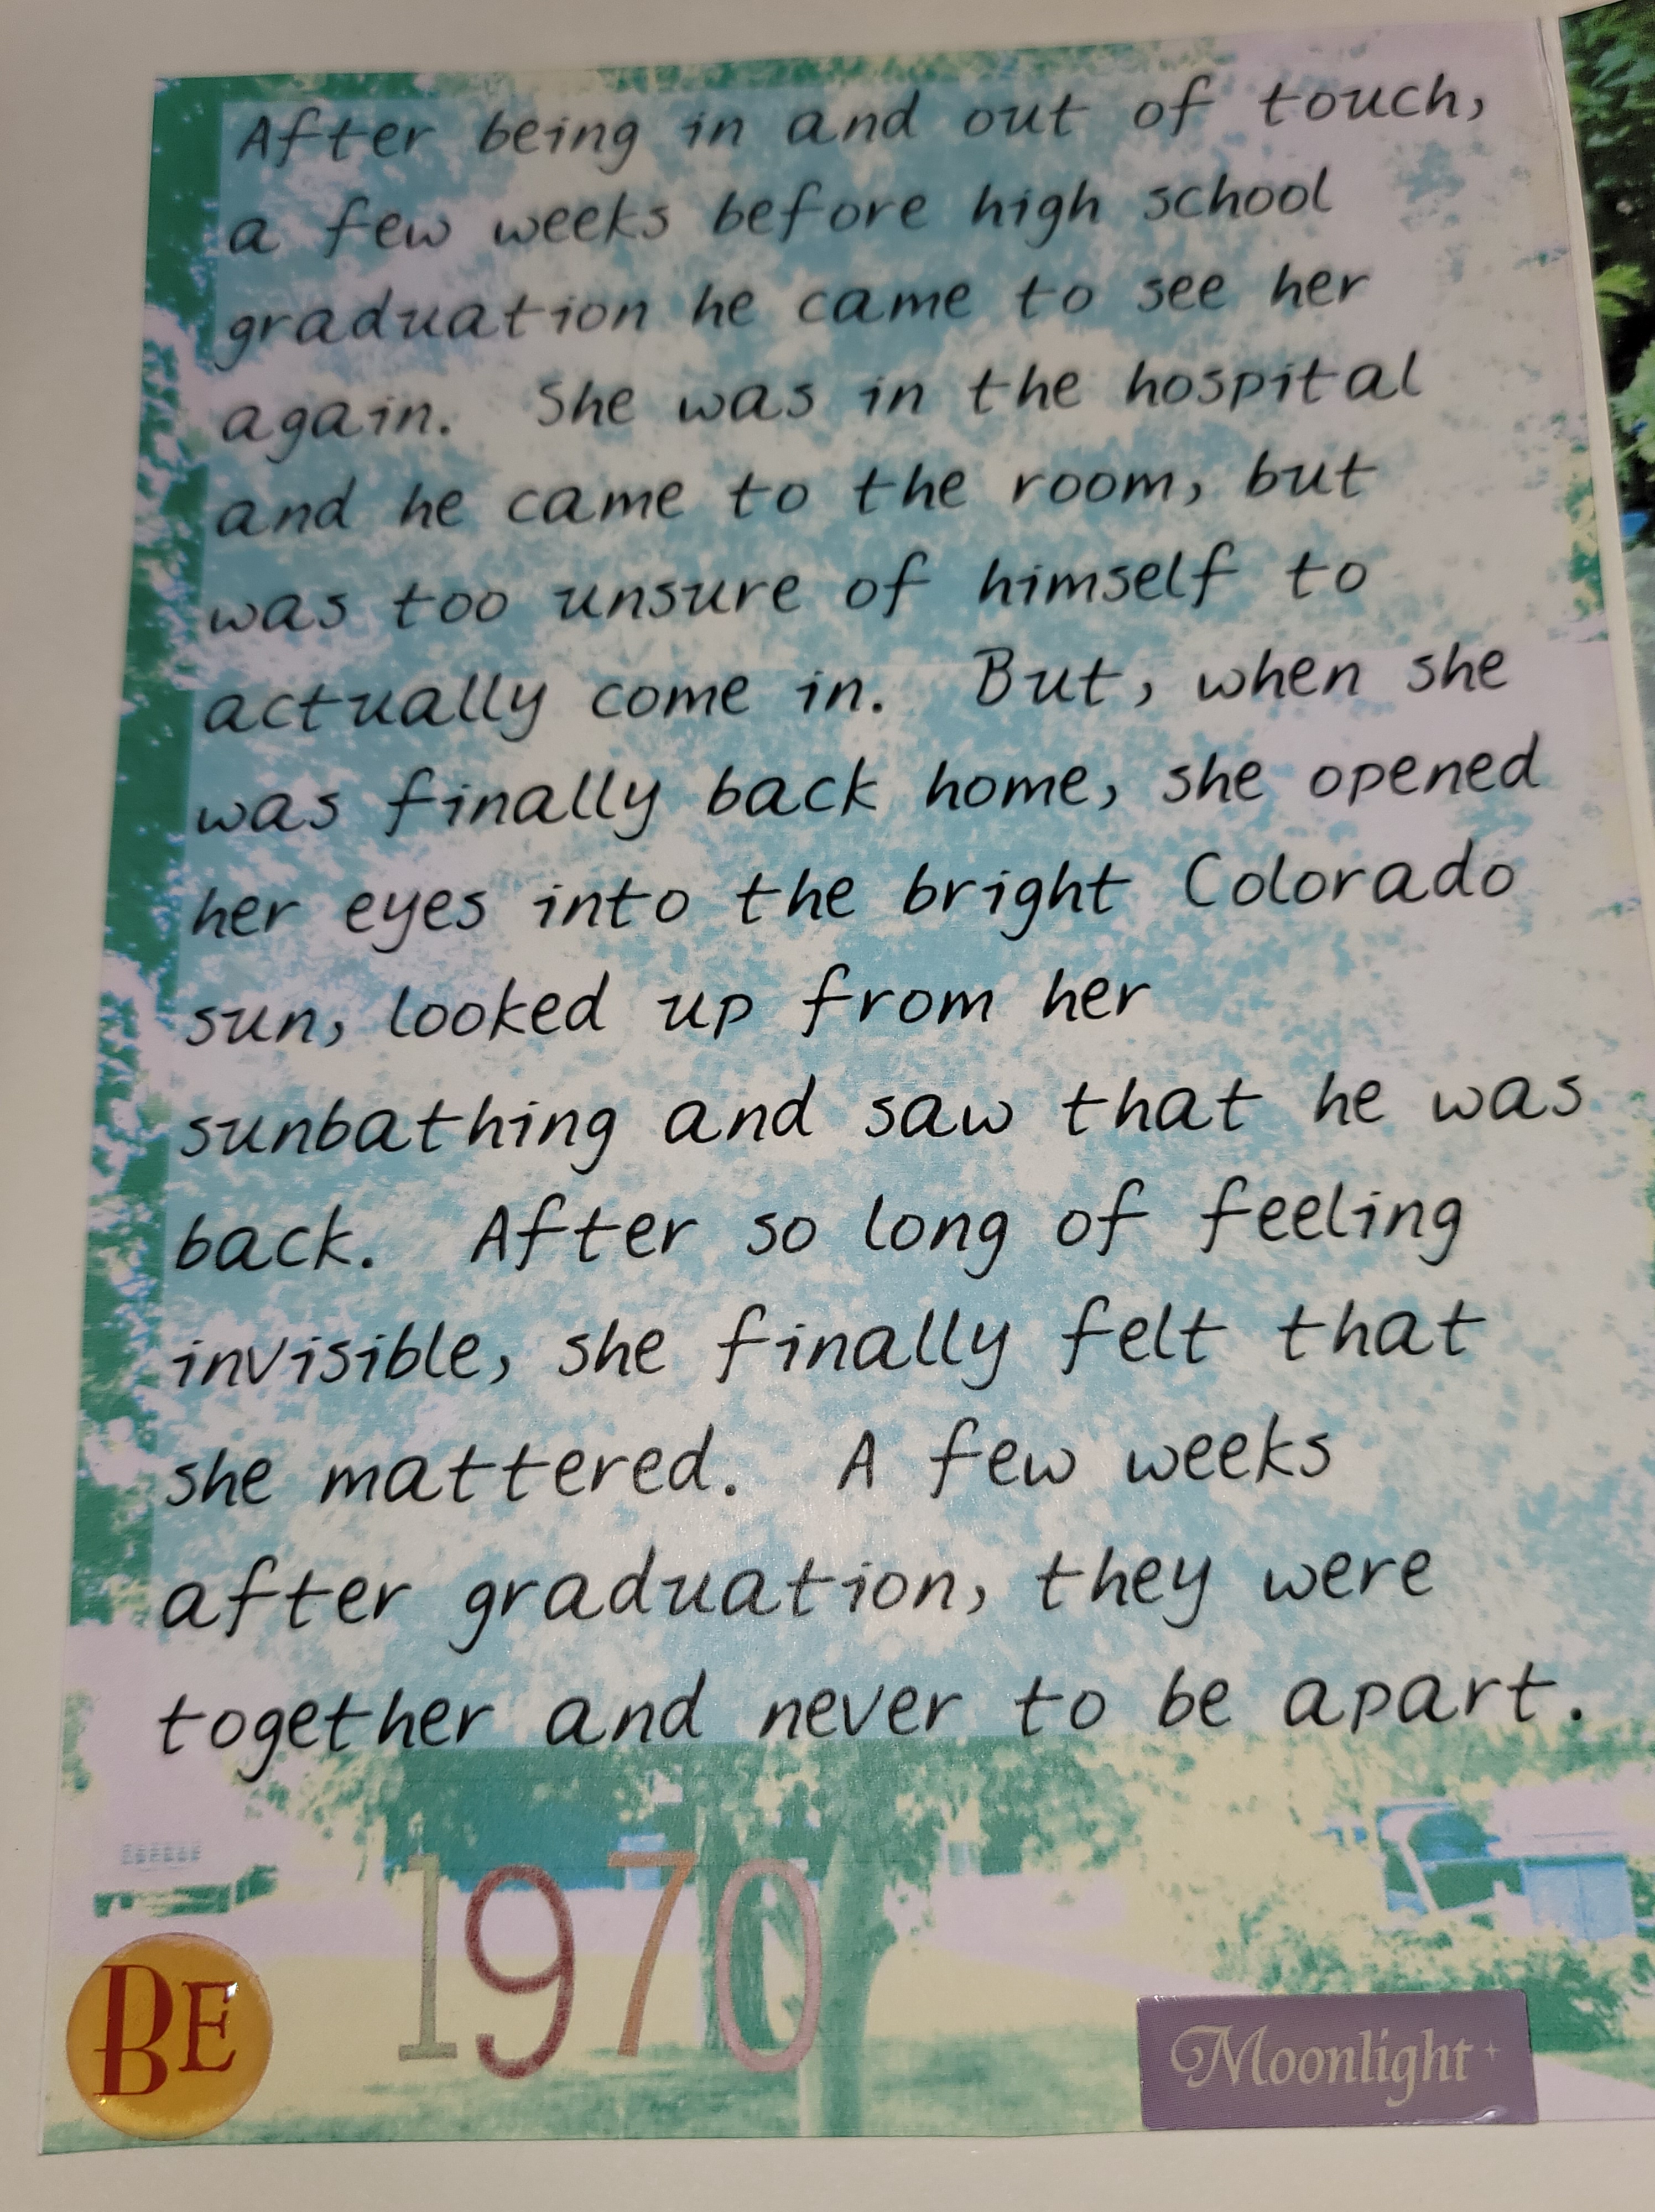 After being in and out of touch,
a few weeks before high school
graduation he came to see her
again. She was in the hospital
and he came to the room, but
was too unsure of himself to
actually come in. But, when she
was finally back home, she opened
her eyes into the bright Colorado
sun, looked up from her
sunbathing and saw that he was
back. After so long of feeling
invisible, she finally felt that
she mattered. A few weeks
after graduation, they were
together and never to be apart.
1970
BE
Moonlight